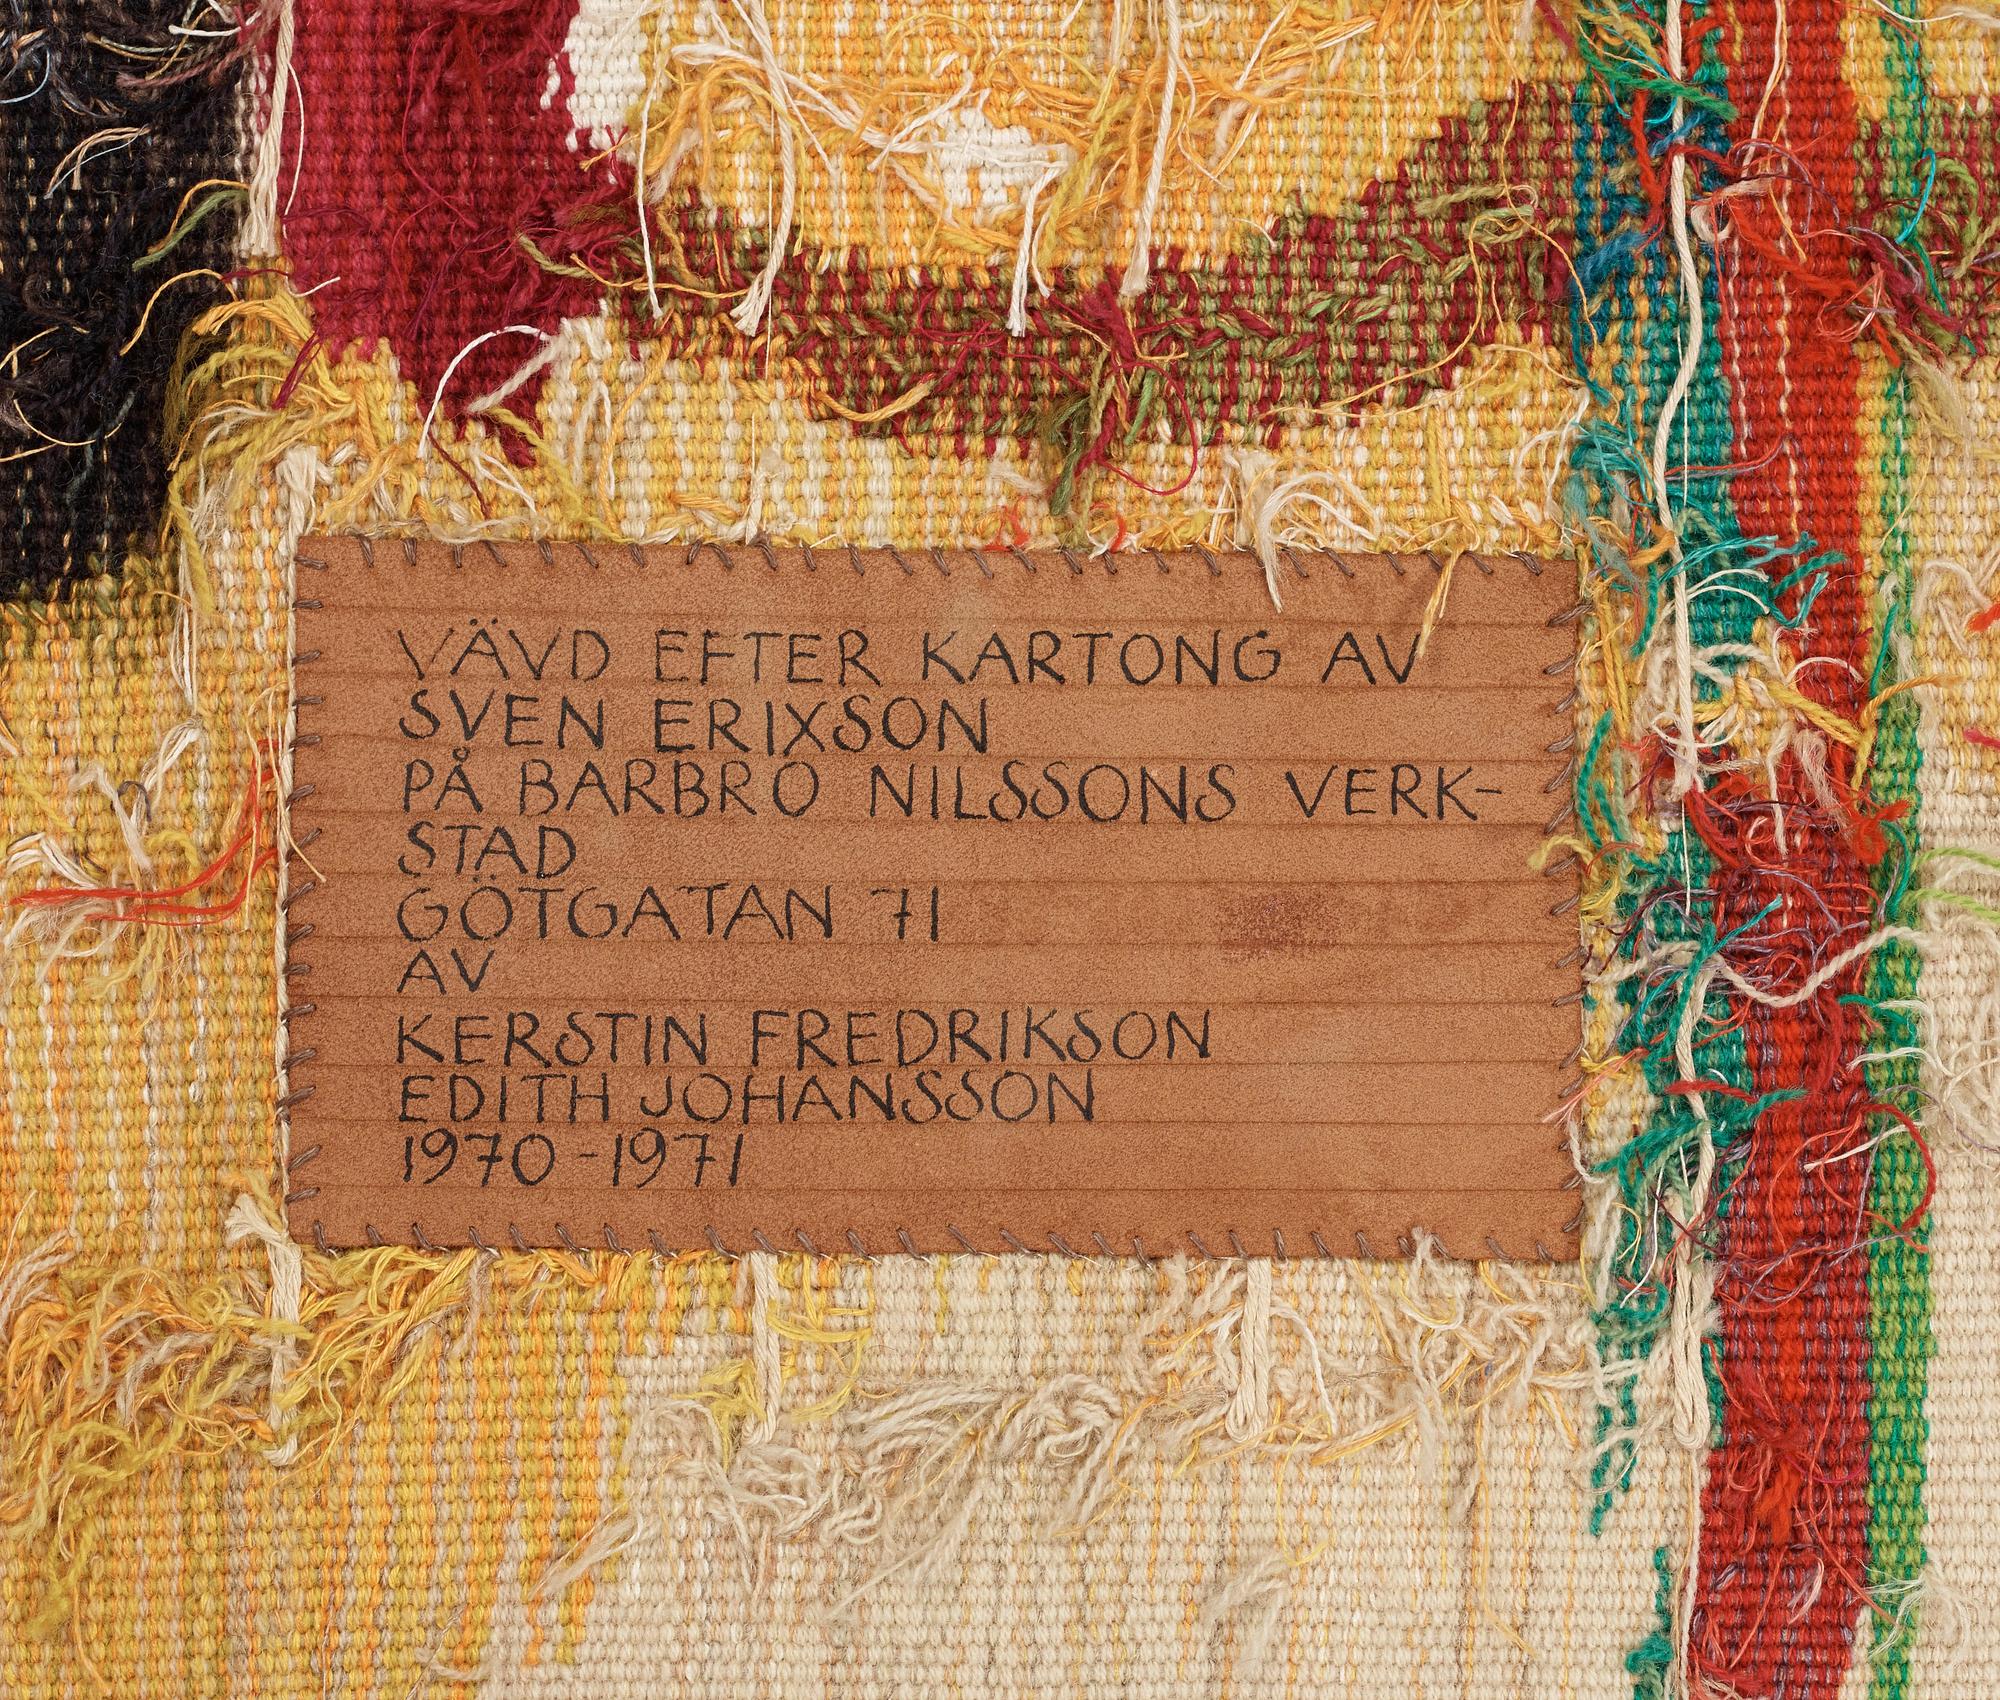 VÄVD EFTER KARTONG AV
SVEN ERIXSON
PÅ BARBRO NILSSONS VERK-
STAD
GÖTGATAN 71
AV
KERSTIN FREDRIKSON
EDITH JOHANSSON
1970-1971